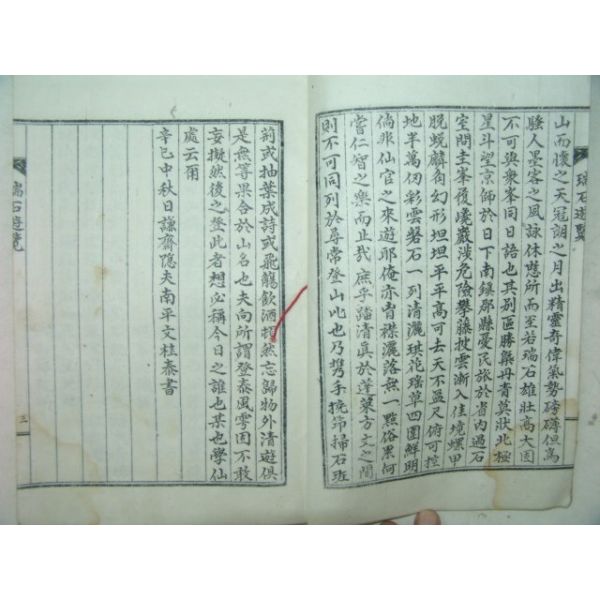 瑞石遊覽
山而懷之天冠朗之月出精靈奇偉氣勢磅礴但爲
騷人墨客之風詠休憊所而至若瑞石雄壯高大固
不可與衆峯同日語也其別區勝槩丹青莫狀北極
星斗望京師於日下南鎭郡縣憂民旅於省内過石
室問圭峯後巉巖涉危險攀藤披雲漸入佳境螺甲
脫蛻麟角幻形坦坦平平高可去天不盈又俯可控
地半萬仞彩雲磐石一列清灑琪花瑶草四圍鮮明
倘非仙官之來遊耶俺亦胷襟灑落無一點俗累何
嘗仁智之樂而止哉庶乎踏清眞於蓬萊方丈之間
則不可同列於尋常登山比也乃携手挽笻掃石班
荊或抽葉成詩或飛觴飮酒然忘歸物外清遊俱
是無等果合於山名也夫向所謂登泰風雩固不敢
妄擬然後之登此者想必稱今日之誰也某也學仙
處云爾
辛巳中秋日謙齋隱夫南平文桂泰書
瑞石遊覽
三